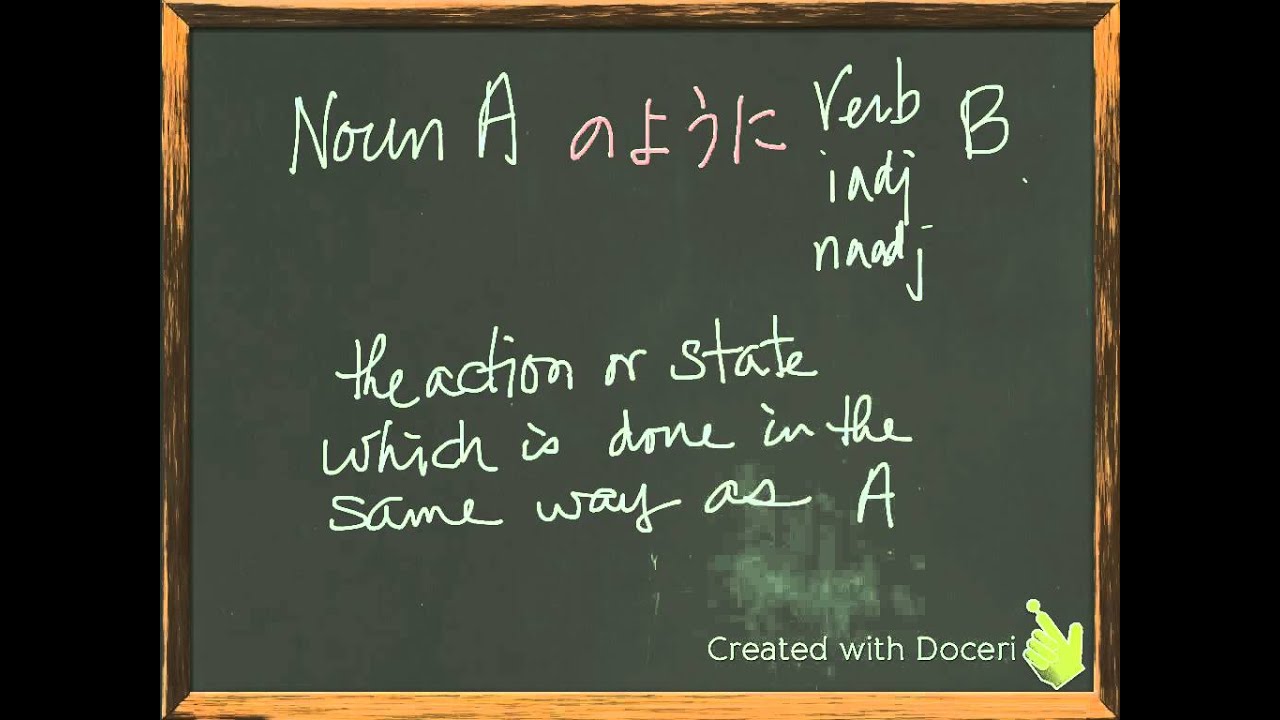 Noun A のように Verb B
i adj
na adj
the action or state
which is done in the
same way as A
Created with Doceri